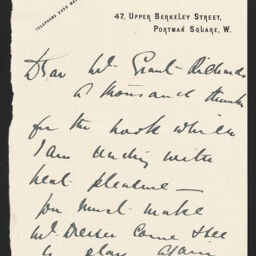 47, UPPER BERKELEY STREET,
PORTMAN SQUARE, W.
Dear Mr Grant Richards
A thousand thanks
for the book which
I am reading with
great pleasure —
you must make
Mr Dreiser come & see
play again